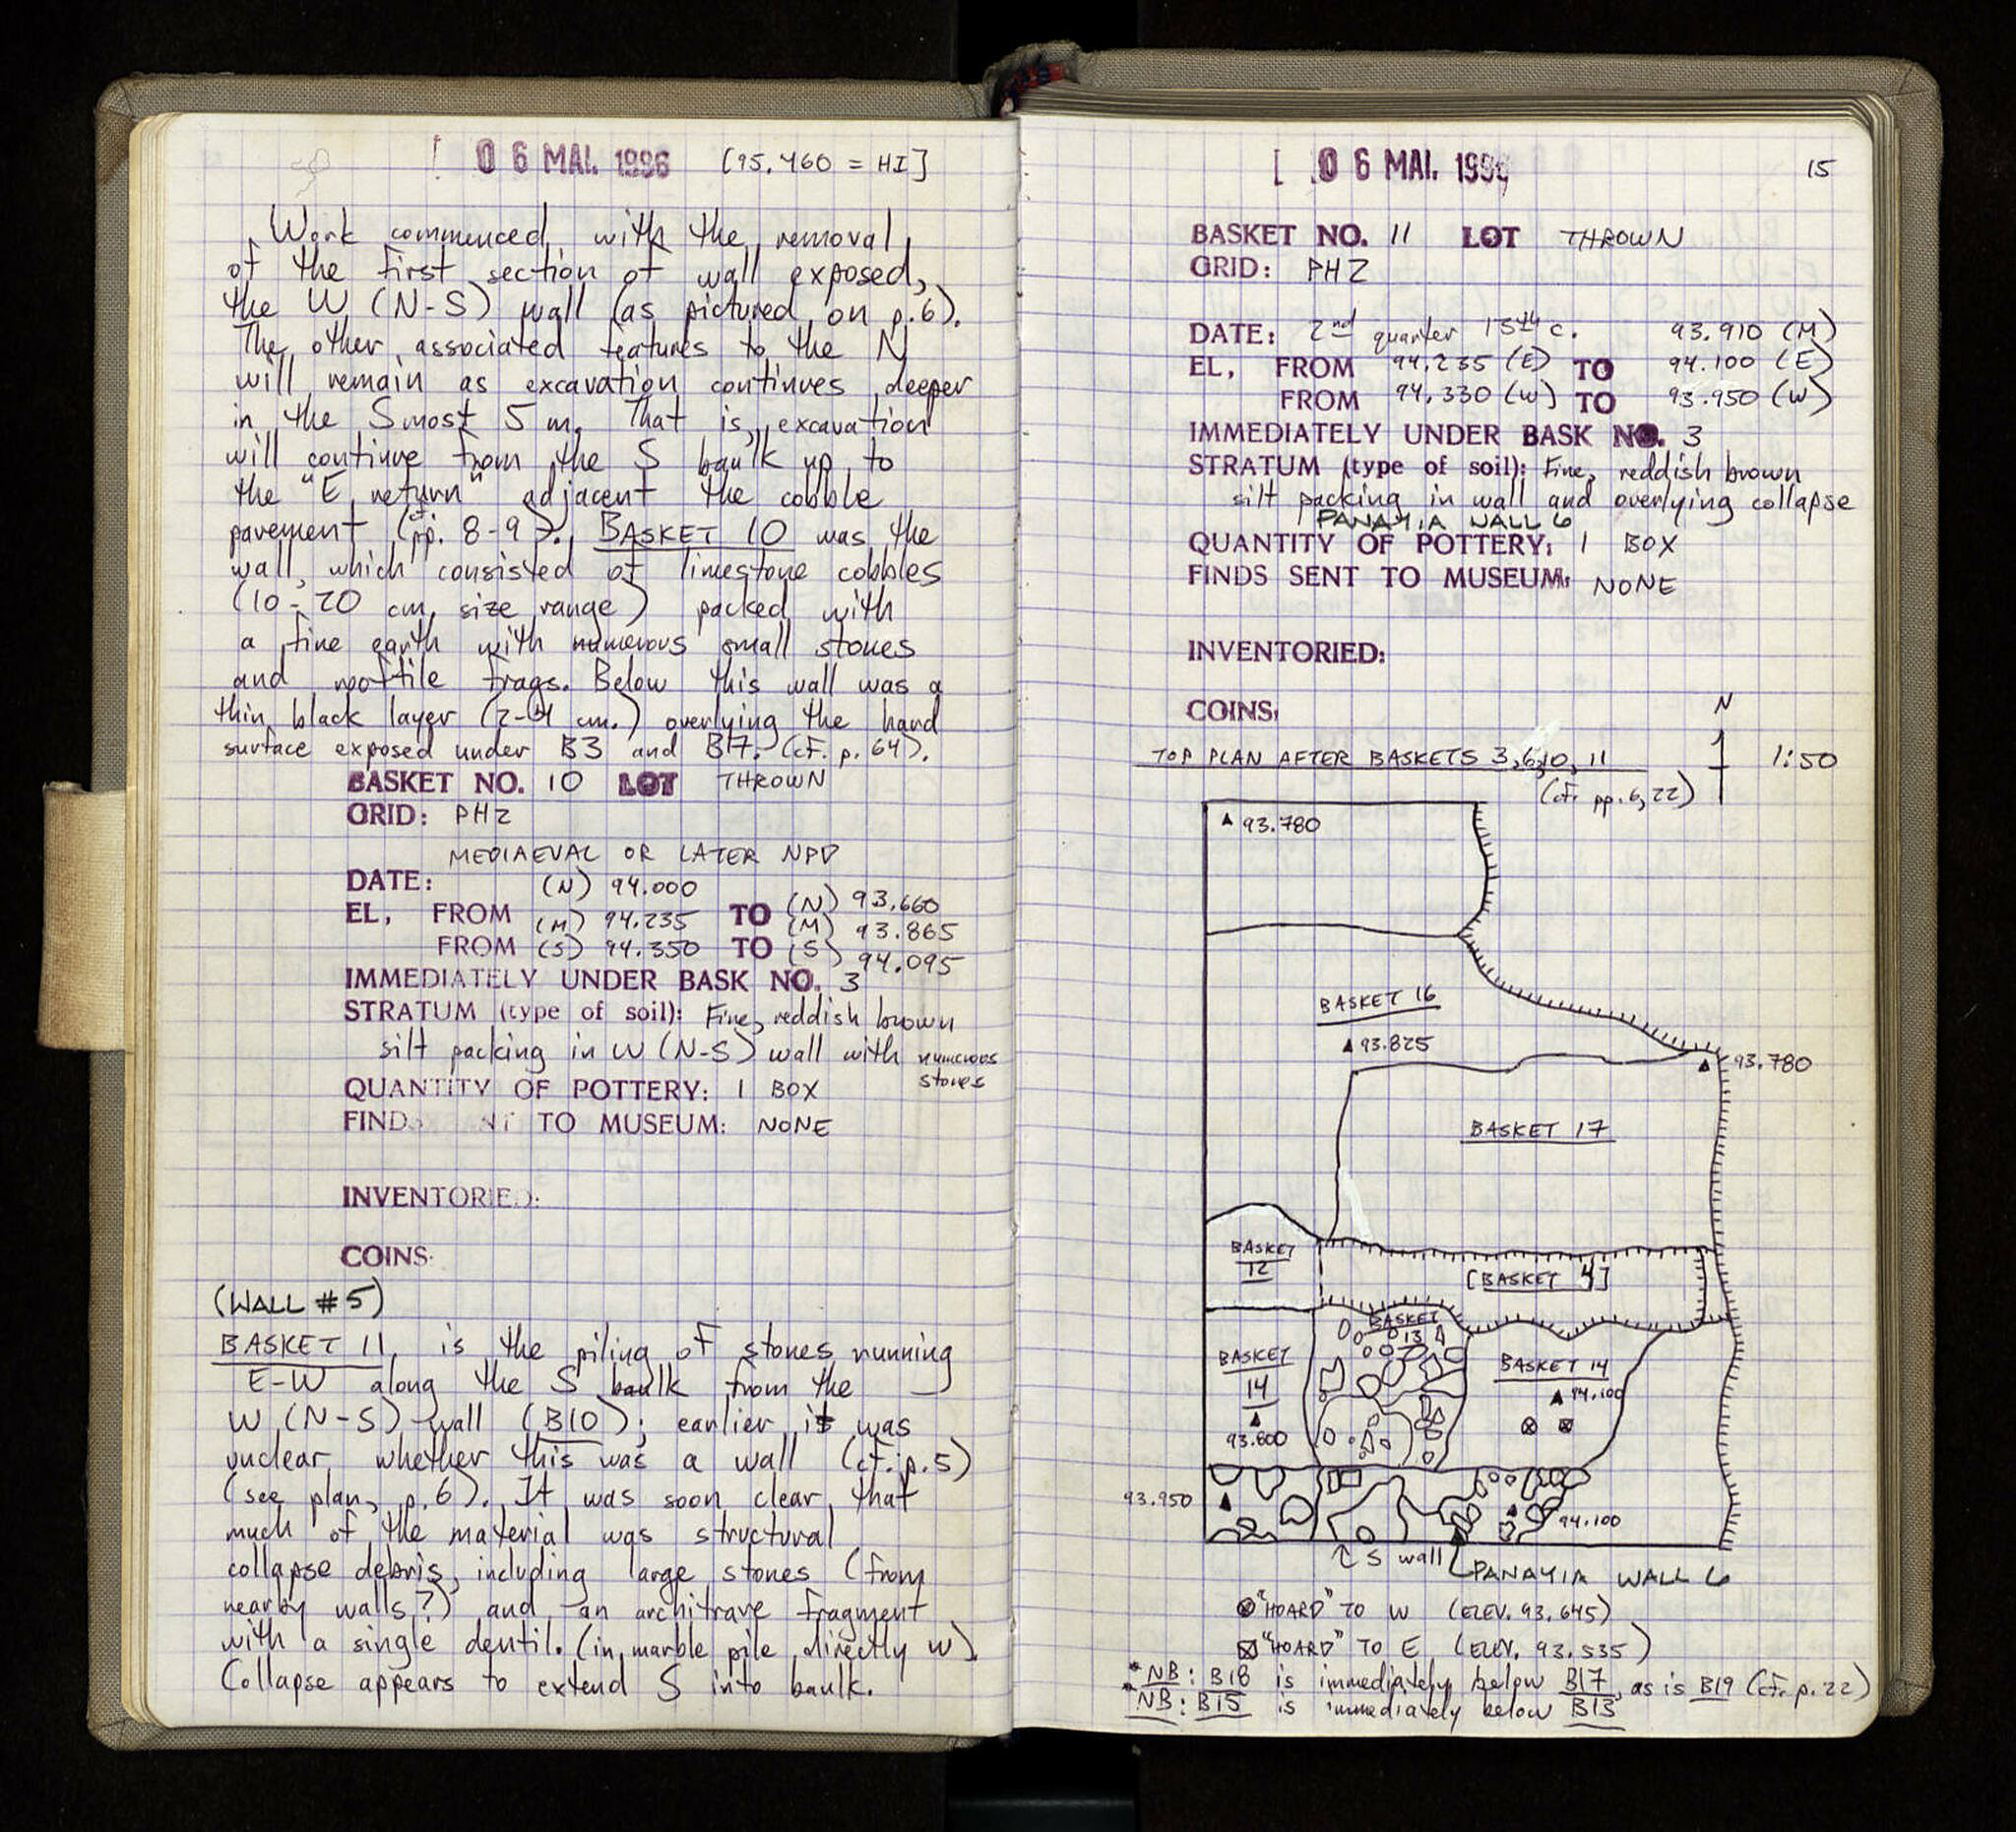 [ 06 MAI. 1996 [95.460 = HI]
Work commenced with the removal
of the first section of wall exposed,
the W (N-S) wall (as pictured on p.6).
The other associated features to the N
will remain as excavation continues deeper
in the Smost 5 m. That is, excavation
will continue from the S baulk up to
the "E return" adjacent the cobble
pavement (cf. pp. 8-9). BASKET 10 was the
wall, which consisted of limestone cobbles
(10-20 cm. size range) packed with
a fine earth with numerous small stones
and rooftile frags. Below this wall was a
thin black layer (2-4 cm.) overlying the hard
surface exposed under B3 and B17. (cf. p. 64).
BASKET NO. 10 LOT THROWN
GRID: PHZ
MEDIAEVAL OR LATER NPD
DATE: (N) 94.000
EL, FROM (M) 94.235 TO (N) 93.660
(M) 93.865
FROM (S) 94.350 TO (S) 94.095
IMMEDIATELY UNDER BASK NO. 3
STRATUM (type of soil): Fine, reddish brown
silt packing in W (N-S) wall with numerous
stones
QUANTITY OF POTTERY: 1 BOX
FINDS SENT TO MUSEUM: NONE
INVENTORIED:
COINS:
(WALL #5)
BASKET 11 is the piling of stones running
E-W along the S baulk from the
W (N-S) wall (B10); earlier it was
unclear whether this was a wall (cf. p.5)
(see plan, p.6). It was soon clear that
much of the material was structural
collapse debris, including large stones (from
nearby walls?) and an architrave fragment
with a single dentil. (in marble pile directly W).
Collapse appears to extend S into baulk.
[ 06 MAI. 1996 15
BASKET NO. 11 LOT THROWN
GRID: PHZ
DATE: 2nd quarter 13th c. 93.910 (M)
EL, FROM 94.235 (E) TO 94.100 (E)
FROM 94.330 (W) TO 93.950 (W)
IMMEDIATELY UNDER BASK NO. 3
STRATUM (type of soil): Fine, reddish brown
silt packing in wall and overlying collapse
PANAYIA WALL 6
QUANTITY OF POTTERY: 1 BOX
FINDS SENT TO MUSEUM: NONE
INVENTORIED:
COINS:
N
TOP PLAN AFTER BASKETS 3,6,10, 11 1:50
(cf. pp. 6, 22)
93.780
BASKET 16
93.825
93.780
BASKET 17
BASKET
12
[BASKET 4]
BASKET
13
BASKET
14
93.800
BASKET 14
94.100
93.950
94.100
S wall PANAYIA WALL 6
"HOARD" TO W (ELEV. 93.645)
"HOARD" TO E (ELEV. 93.535)
*NB: B18 is immediately below B17, as is B19 (cf. p. 22)
*NB: B15 is immediately below B13